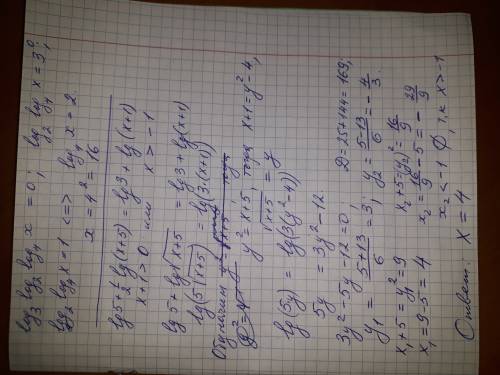 log₃ log₂ log₄ x = 0; log₂ log₄ x = 3⁰;
log₂ log₄ x = 1 <=> log₄ x = 2
x = 4² = 16
lg5 + ½ lg(x+5) = lg3 + lg(x+1)
x+1 > 0 или x > -1
lg5 + lg√x+5 = lg3 + lg(x+1)
lg(5√x+5) = lg(3·(x+1))
Обозначим √x+5 = y
y² = x+5, тогда x+1 = y²-4,
lg(5y) = lg(3(y²-4))
5y = 3y²-12
3y²-5y-12=0; D=25+144=169;
y₁ = 5+13/6 = 3; y₂ = 5-13/6 = -4/3.
x₁+5=y₁²=9 x₂+5=(y₂)²=16/9
x₁=9-5=4 x₂=16/9-5=-29/9
x₂<-1 ∅, т.к x>-1
Ответ: x=4